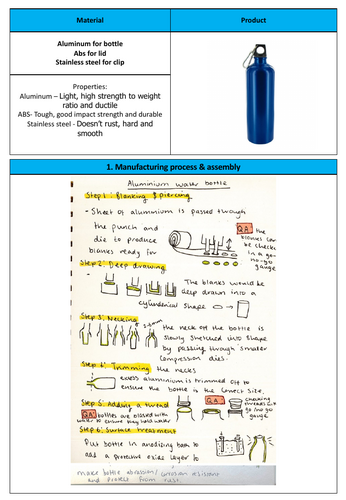 Material
Product
Aluminum for bottle
Abs for lid
Stainless steel for clip
Properties:
Aluminum – Light, high strength to weight
ratio and ductile
ABS- Tough, good impact strength and durable
Stainless steel - Doesn't rust, hard and
smooth
1. Manufacturing process & assembly
Aluminium water bottle
Step 1: Blanking & piercing
- Sheet of aluminium is passed through
the punch and
die to produce
blanks ready for
QA the
blanks can
be checked
in a go-
no-go
gauge
Step 2: Deep drawing
The blanks would be
deep drawn into a
cylindrical shape
Step 3: Necking
the neck off the bottle is
slowly stretched into shape
by passing through smaller
compression dies.
Step 4: Trimming the necks
excess aluminium is trimmed off to
ensure the bottle is the correct size.
Step 5: Adding a thread
QA bottles are blasted with
water to ensure they hold water
QA
checking
threads
go no go
gauge
Step 6: Surface treatment
Put bottle in anodizing bath to
add a protective oxide layer to
make bottle abrasion/ corrosion resistant
and protect from rust.